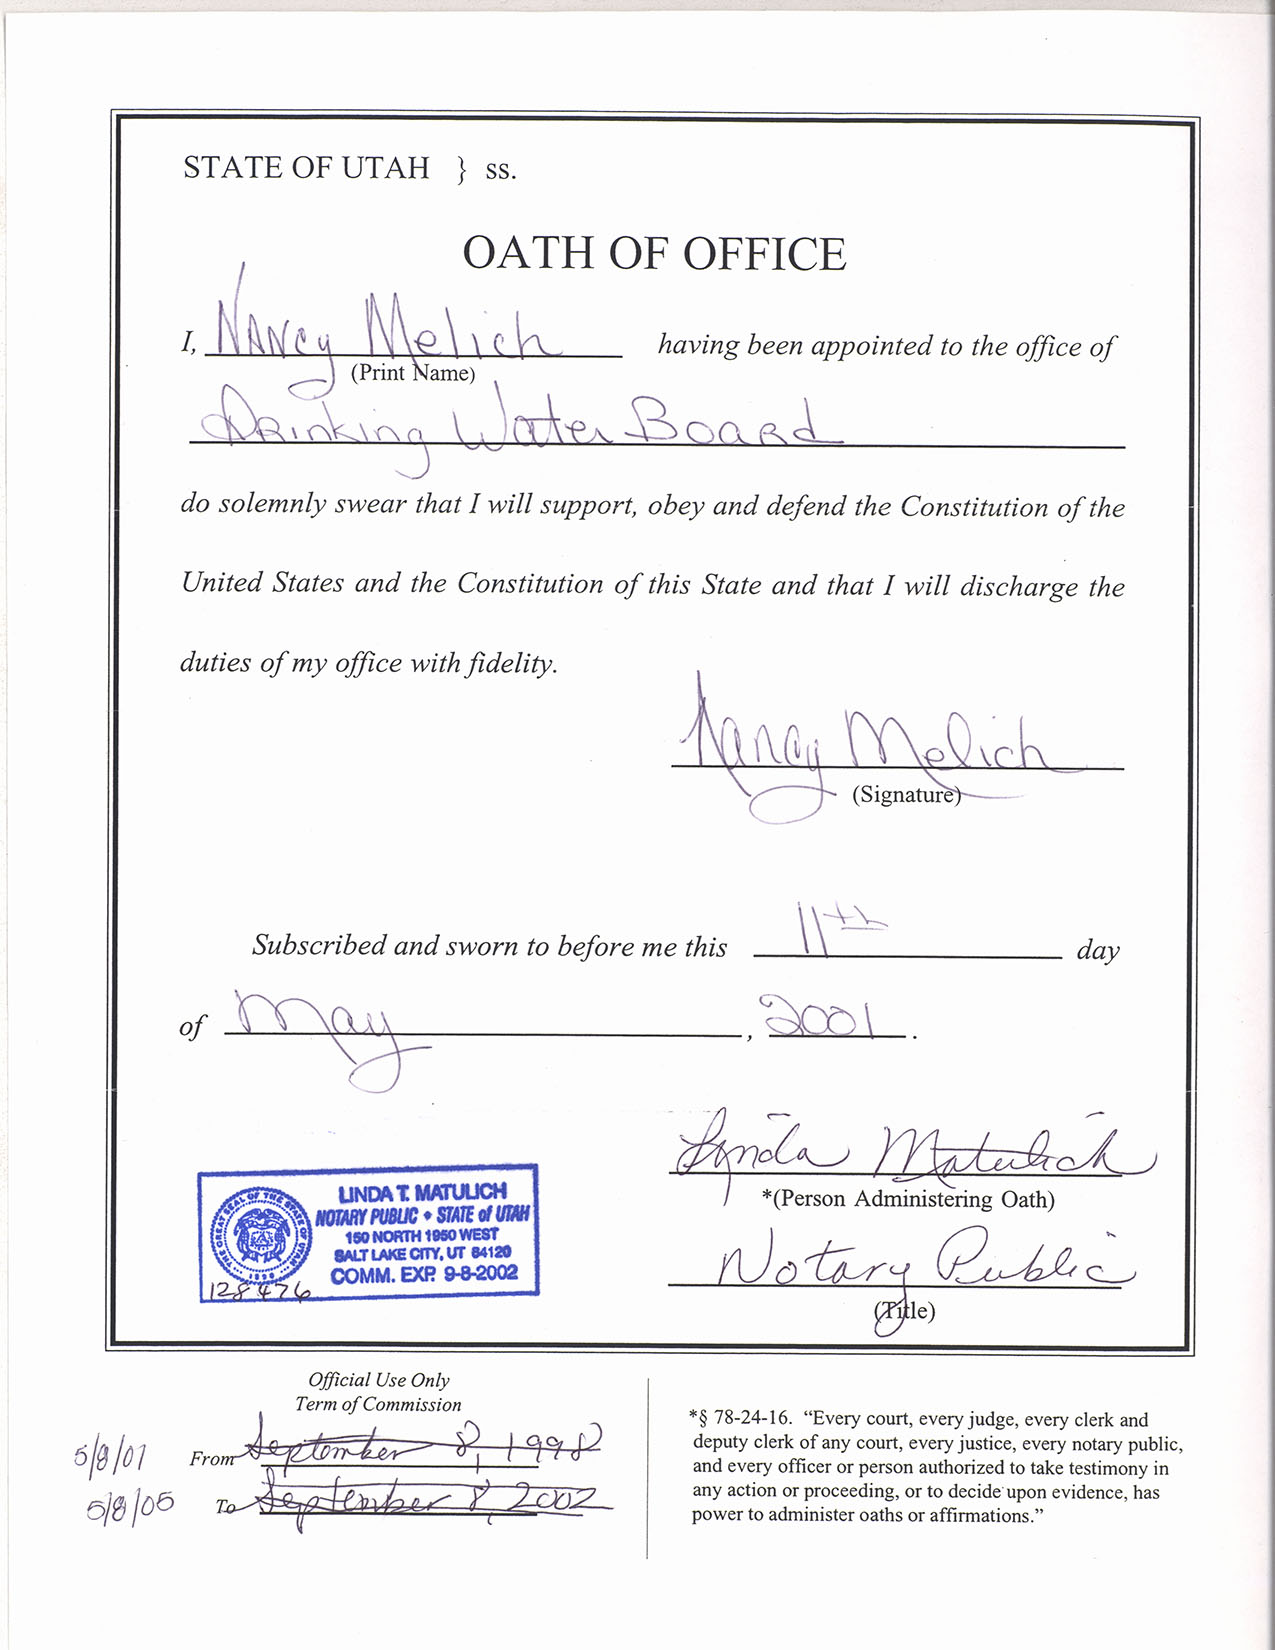 STATE OF UTAH } ss.
OATH OF OFFICE
I, Nancy Melich having been appointed to the office of
(Print Name)
Drinking Water Board
do solemnly swear that I will support, obey and defend the Constitution of the
United States and the Constitution of this State and that I will discharge the
duties of my office with fidelity.
Nancy Melich
(Signature)
Subscribed and sworn to before me this 11th day
of May, 2001.
Linda Matulich
*(Person Administering Oath)
Notary Public
(Title)
THE GREAT SEAL OF THE STATE OF UTAH
1896
LINDA T. MATULICH
NOTARY PUBLIC • STATE of UTAH
150 NORTH 1950 WEST
SALT LAKE CITY, UT 84120
COMM. EXP. 9-8-2002
128476
Official Use Only
Term of Commission
5/8/01 From September 8, 1998
5/8/05 To September 8, 2002
*§ 78-24-16. “Every court, every judge, every clerk and
deputy clerk of any court, every justice, every notary public,
and every officer or person authorized to take testimony in
any action or proceeding, or to decide upon evidence, has
power to administer oaths or affirmations.”